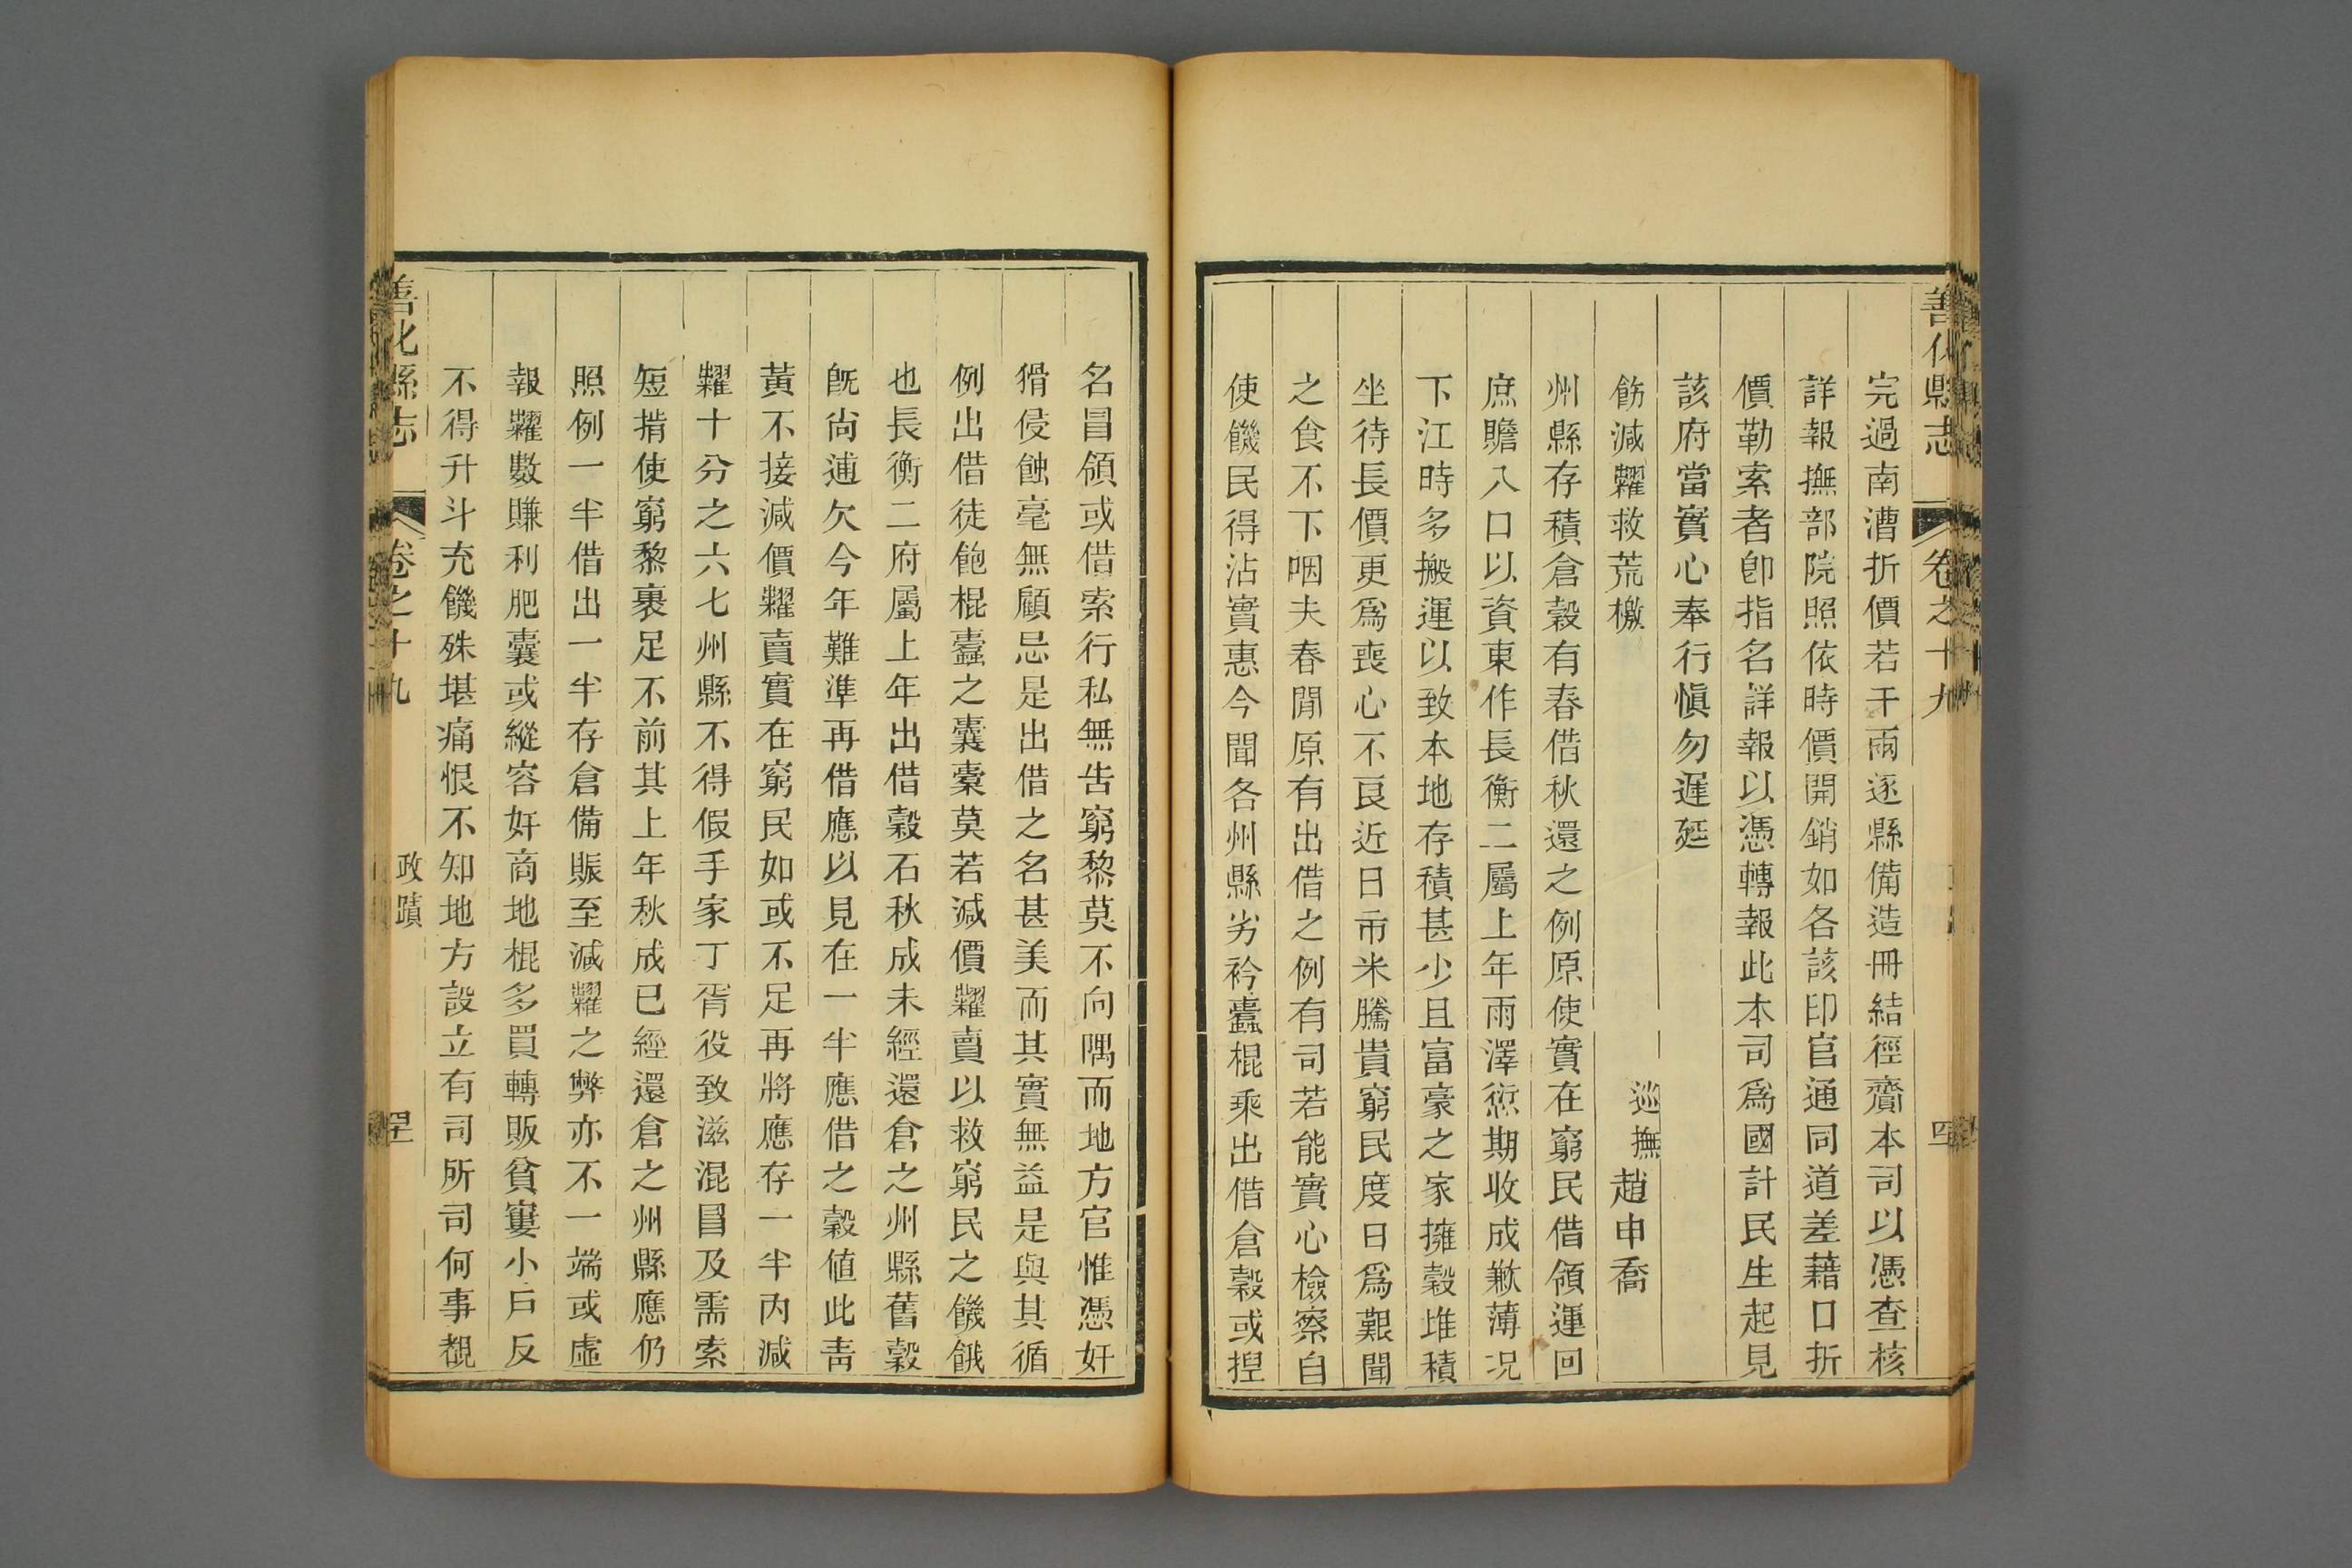 善化縣志 卷之十九
完過南漕折價若干兩逐縣備造冊結徑齎本司以憑查核
詳報撫部院照依時價開銷如各該印官通同道差藉口折
價勒索者卽指名詳報以憑轉報此本司爲國計民生起見
該府當實心奉行愼勿遲延
飭減糶救荒檄 巡撫趙申喬
州縣存積倉穀有春借秋還之例原使實在窮民借領運回
庶贍八口以資東作長衡二屬上年雨澤愆期收成歉薄况
下江時多搬運以致本地存積甚少且富豪之家擁穀堆積
坐待長價更爲喪心不良近日市米騰貴窮民度日爲艱聞
之食不下咽夫春閒原有出借之例有司若能實心檢察自
使饑民得沾實惠今聞各州縣劣衿蠹棍乘出借倉穀或揑
名冒領或借索行私無告窮黎莫不向隅而地方官惟憑奸
猾侵蝕毫無顧忌是出借之名甚美而其實無益是與其循
例出借徒飽棍蠹之囊橐莫若減價糶賣以救窮民之饑餓
也長衡二府屬上年出借穀石秋成未經還倉之州縣舊穀
旣尙逋欠今年難準再借應以見在一半應借之穀値此靑
黃不接減價糶賣實在窮民如或不足再將應存一半內減
糶十分之六七州縣不得假手家丁胥役致滋混冒及需索
短掯使窮黎裹足不前其上年秋成已經還倉之州縣應仍
照例一半借出一半存倉備賑至減糶之弊亦不一端或虛
報糶數賺利肥囊或縱容奸商地棍多買轉販貧窶小戶反
不得升斗充饑殊堪痛恨不知地方設立有司所司何事覩
善化縣志 卷之十九 政蹟